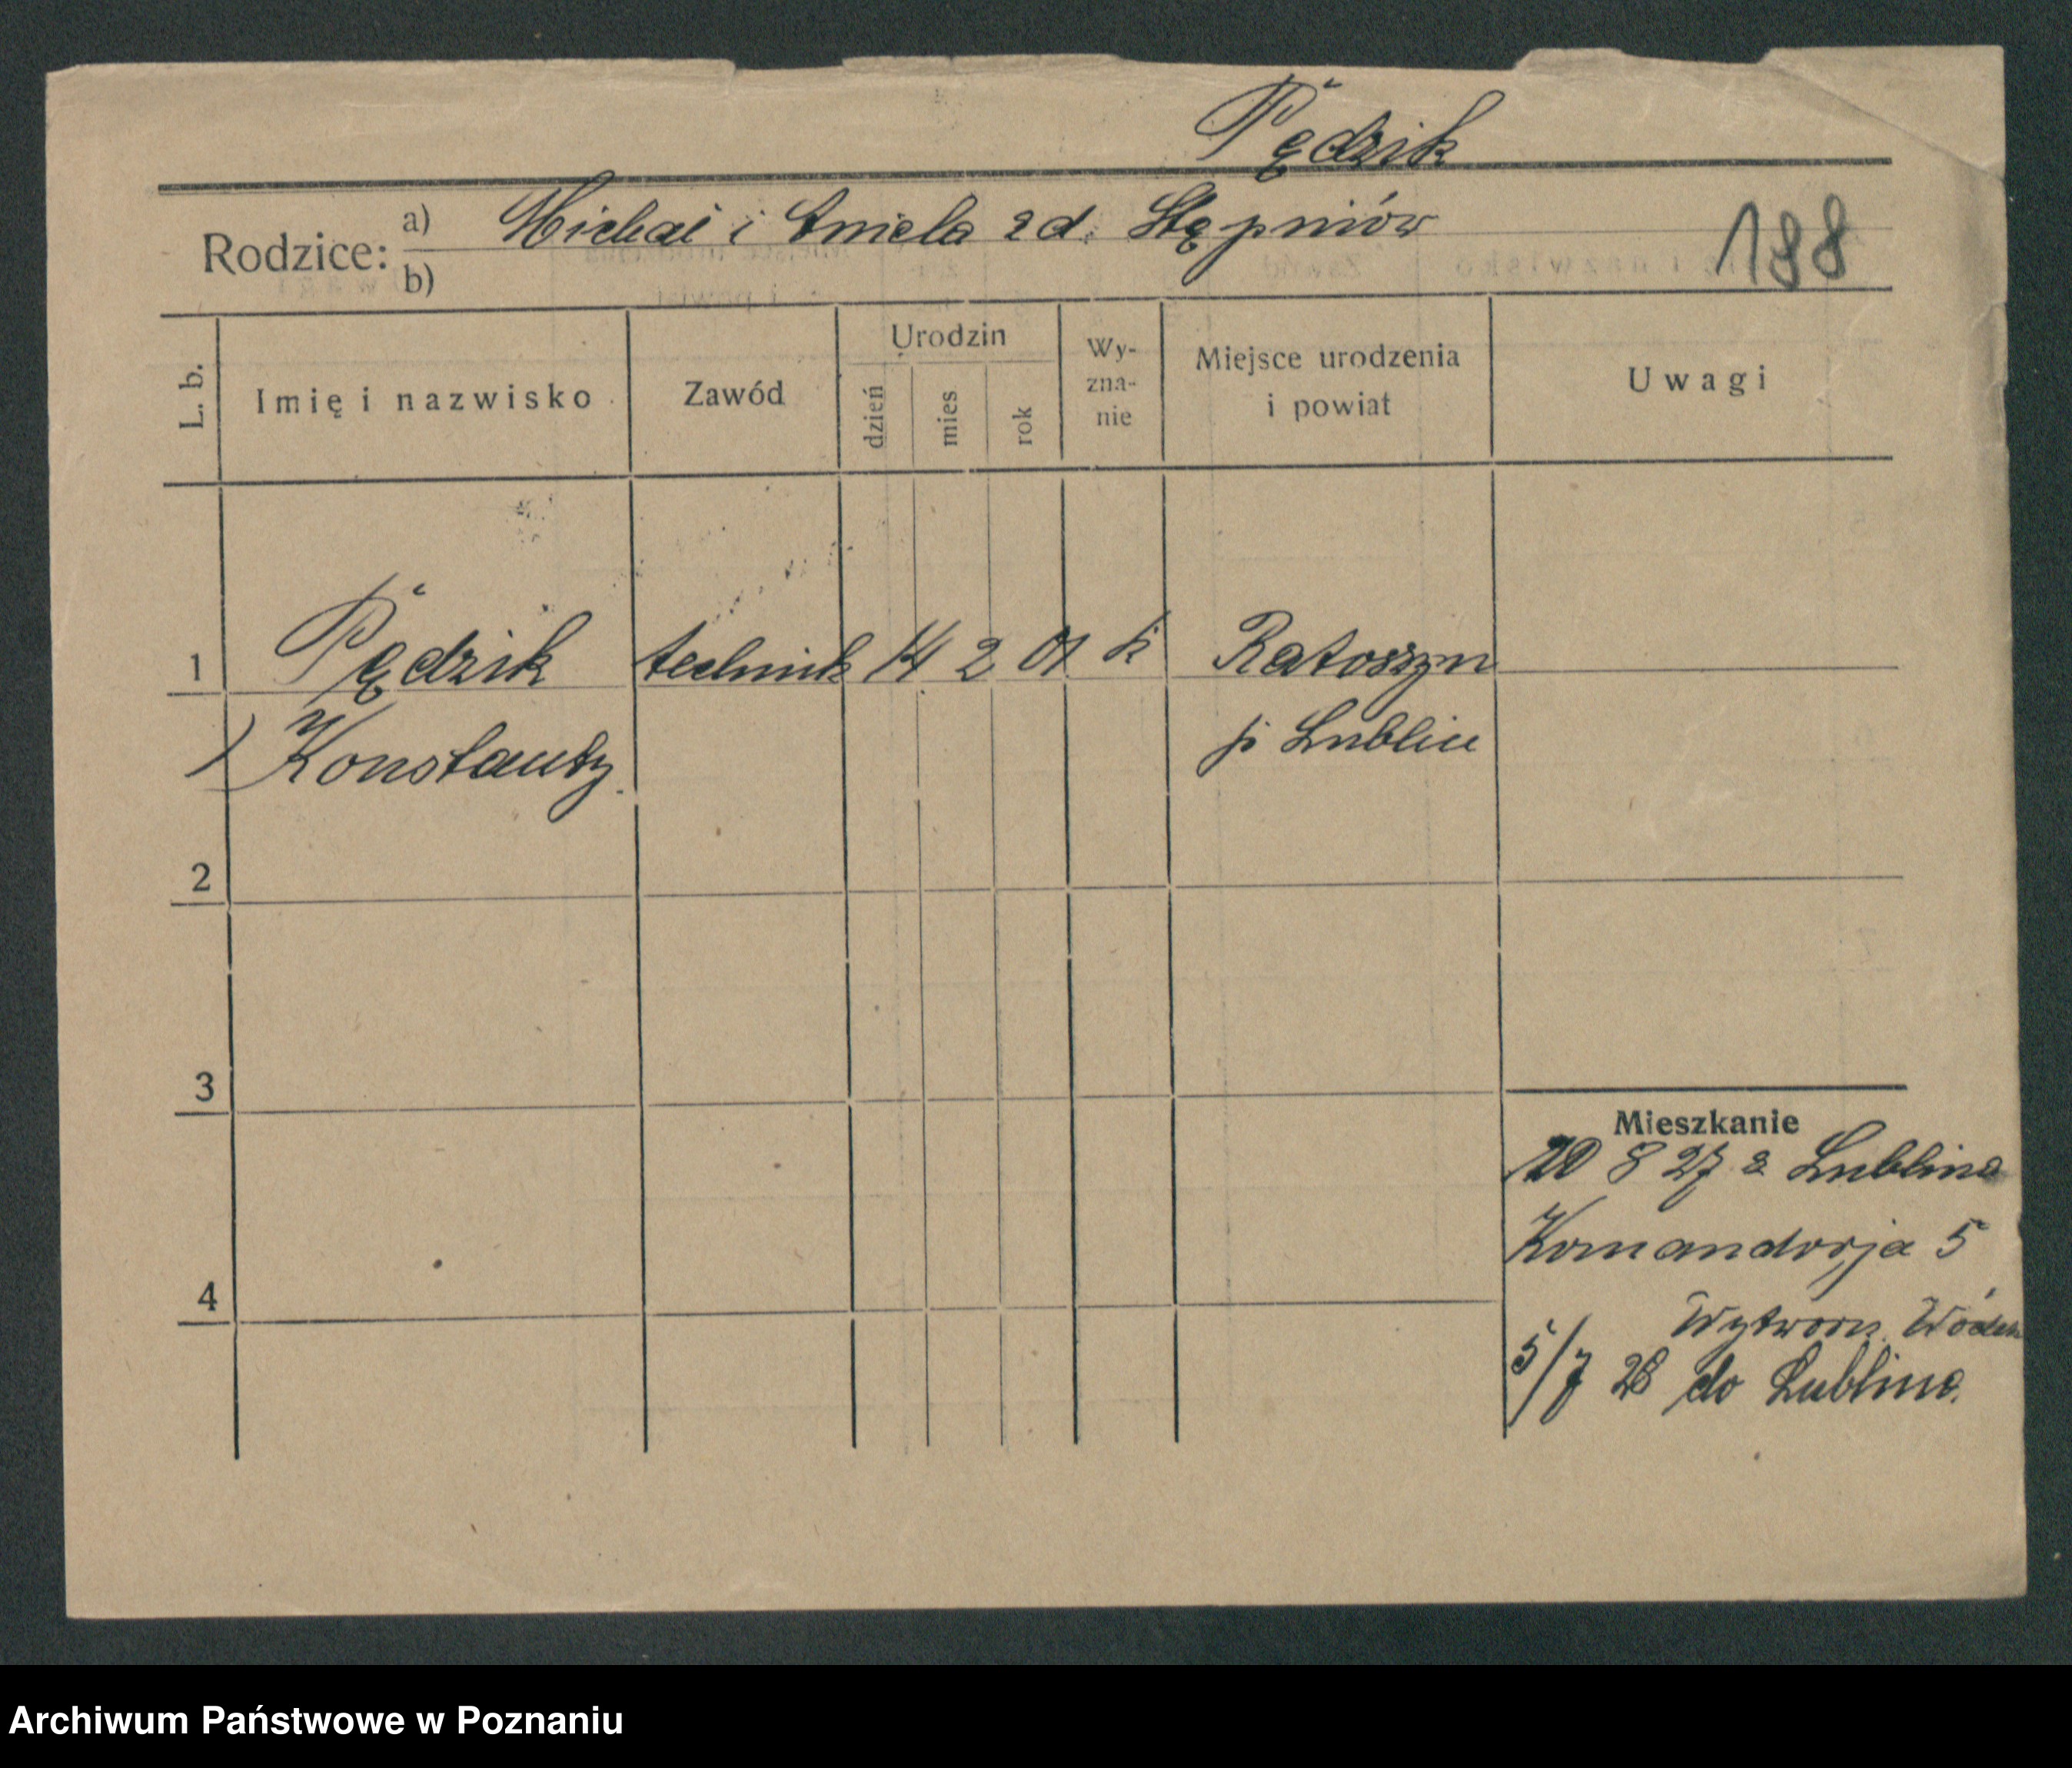 Pędzik
Rodzice: a) Michał i Aniela z d. Stępniów
b)
188
L. b. Imię i nazwisko Zawód Urodzin dzień mies rok Wy-zna-nie Miejsce urodzenia i powiat Uwagi
1 Pędzik technik 14 2 01 k Ratoszyn
Konstanty p Lublin
2
3
Mieszkanie
20 8 27 z Lublina
Komandorja 5
4
Wytworn. Wódek
5/7 28 do Lublina.
Archiwum Państwowe w Poznaniu